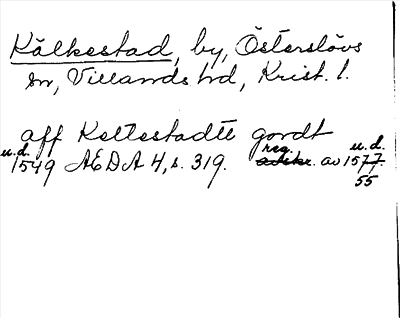 Kälkestad, by, Österslövs
sn, Villands hd, Krist. l.
aff Keltestadtt gordt
u.d. reg. u.d.
1549 AEDA 4, s. 319. av 1577.
55